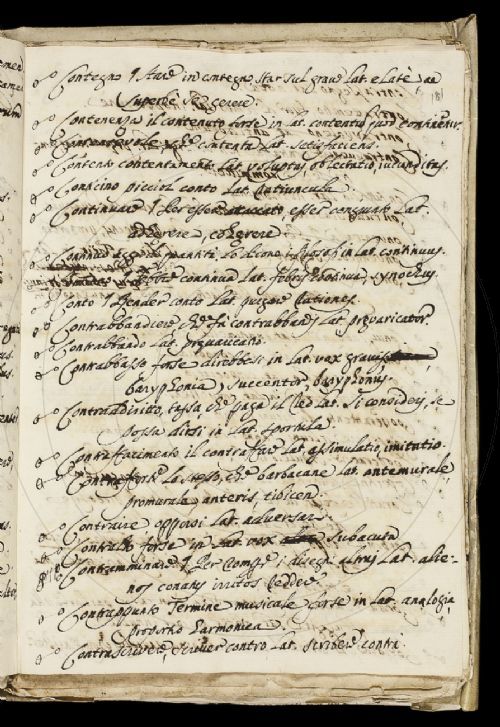 Contegno / star in contegno, star sul grave Lat. elatè ac
superbè se gerere.
Contenenza il contenuto forse in lat. contentio, quod continetur.
Contentevole, ch'è contenta lat. satisfaciens.
Contento contentamento lat. voluptas, oblectatio, iucunditas.
Conticino picciol conto Lat. ratiuncula.
Continuare / Per esser attaccato, esser congiunto Lat.
adhaerere, cohaerere
Continuo quantità lo dicono i filosofi in lat. continuus.
febre continua Lat. febris continua, synochus.
Conto / render conto Lat. rationes.
Contrabbandiere, ch' fà contrabbandi Lat. praevaricator
Contrabbando Lat.
Contrabbasso forse direbbesi in lat. vox gravis
baryphonia, succentor, baryphonus.
Contradiritto, tassa ch' paga il Lat. Si consideri, se
possa dirsi in lat. sportula.
Contrafacimento il contraffare lat. assimulatio, imitatio
Contraforte lo stesso, ch' barbacane lat. antemurale,
promurale anteris, tibicen.
Contraire opporsi Lat. adversari.
Contralto forse in lat vox subacuta
Contramminare / Per i disegni altrui Lat. alie-
nos conatus irritos reddere.
Contrappunto Termine musicale forse in lat. analogia,
proportio harmonica
Contrascrivere, scriver contro Lat. scribere contra
181